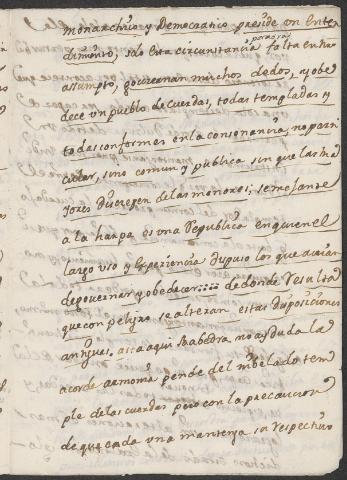 monarchico y Democratico preside un Enten
dimiento, solo esta circunstancia por aora falta en nro
assumpto, goviernan muchos dedos, y obe
dece un pueblo de cuerdas, todas templadas y
todas conformes en la consonancia, no parti
cular, sino comun y publica sin que las ma
yores discrepen de las menores; semejante
a la harpa es una Republica en quien el
largo uso y experiencia dispuso los que avian
de governar y obedecer de donde resulta
que con peligro se alteran estas disposiciones
antiguas, asta aqui Saabedra no ay duda la
acorde armonia pende del nibelado tem
ple de las cuerdas pero con la precaucion
de que cada una mantenga su respectivo